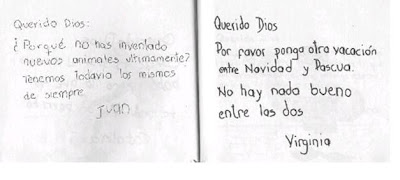 Querido Dios:
¿Porqué no has inventado
nuevos animales ultimamente?
Tenemos Todavia los mismos
de siempre
Juan
Querido Dios
Por favor ponga otra vacación
entre Navidad y Pascua.
No hay nada bueno
entre las dos
Virginia